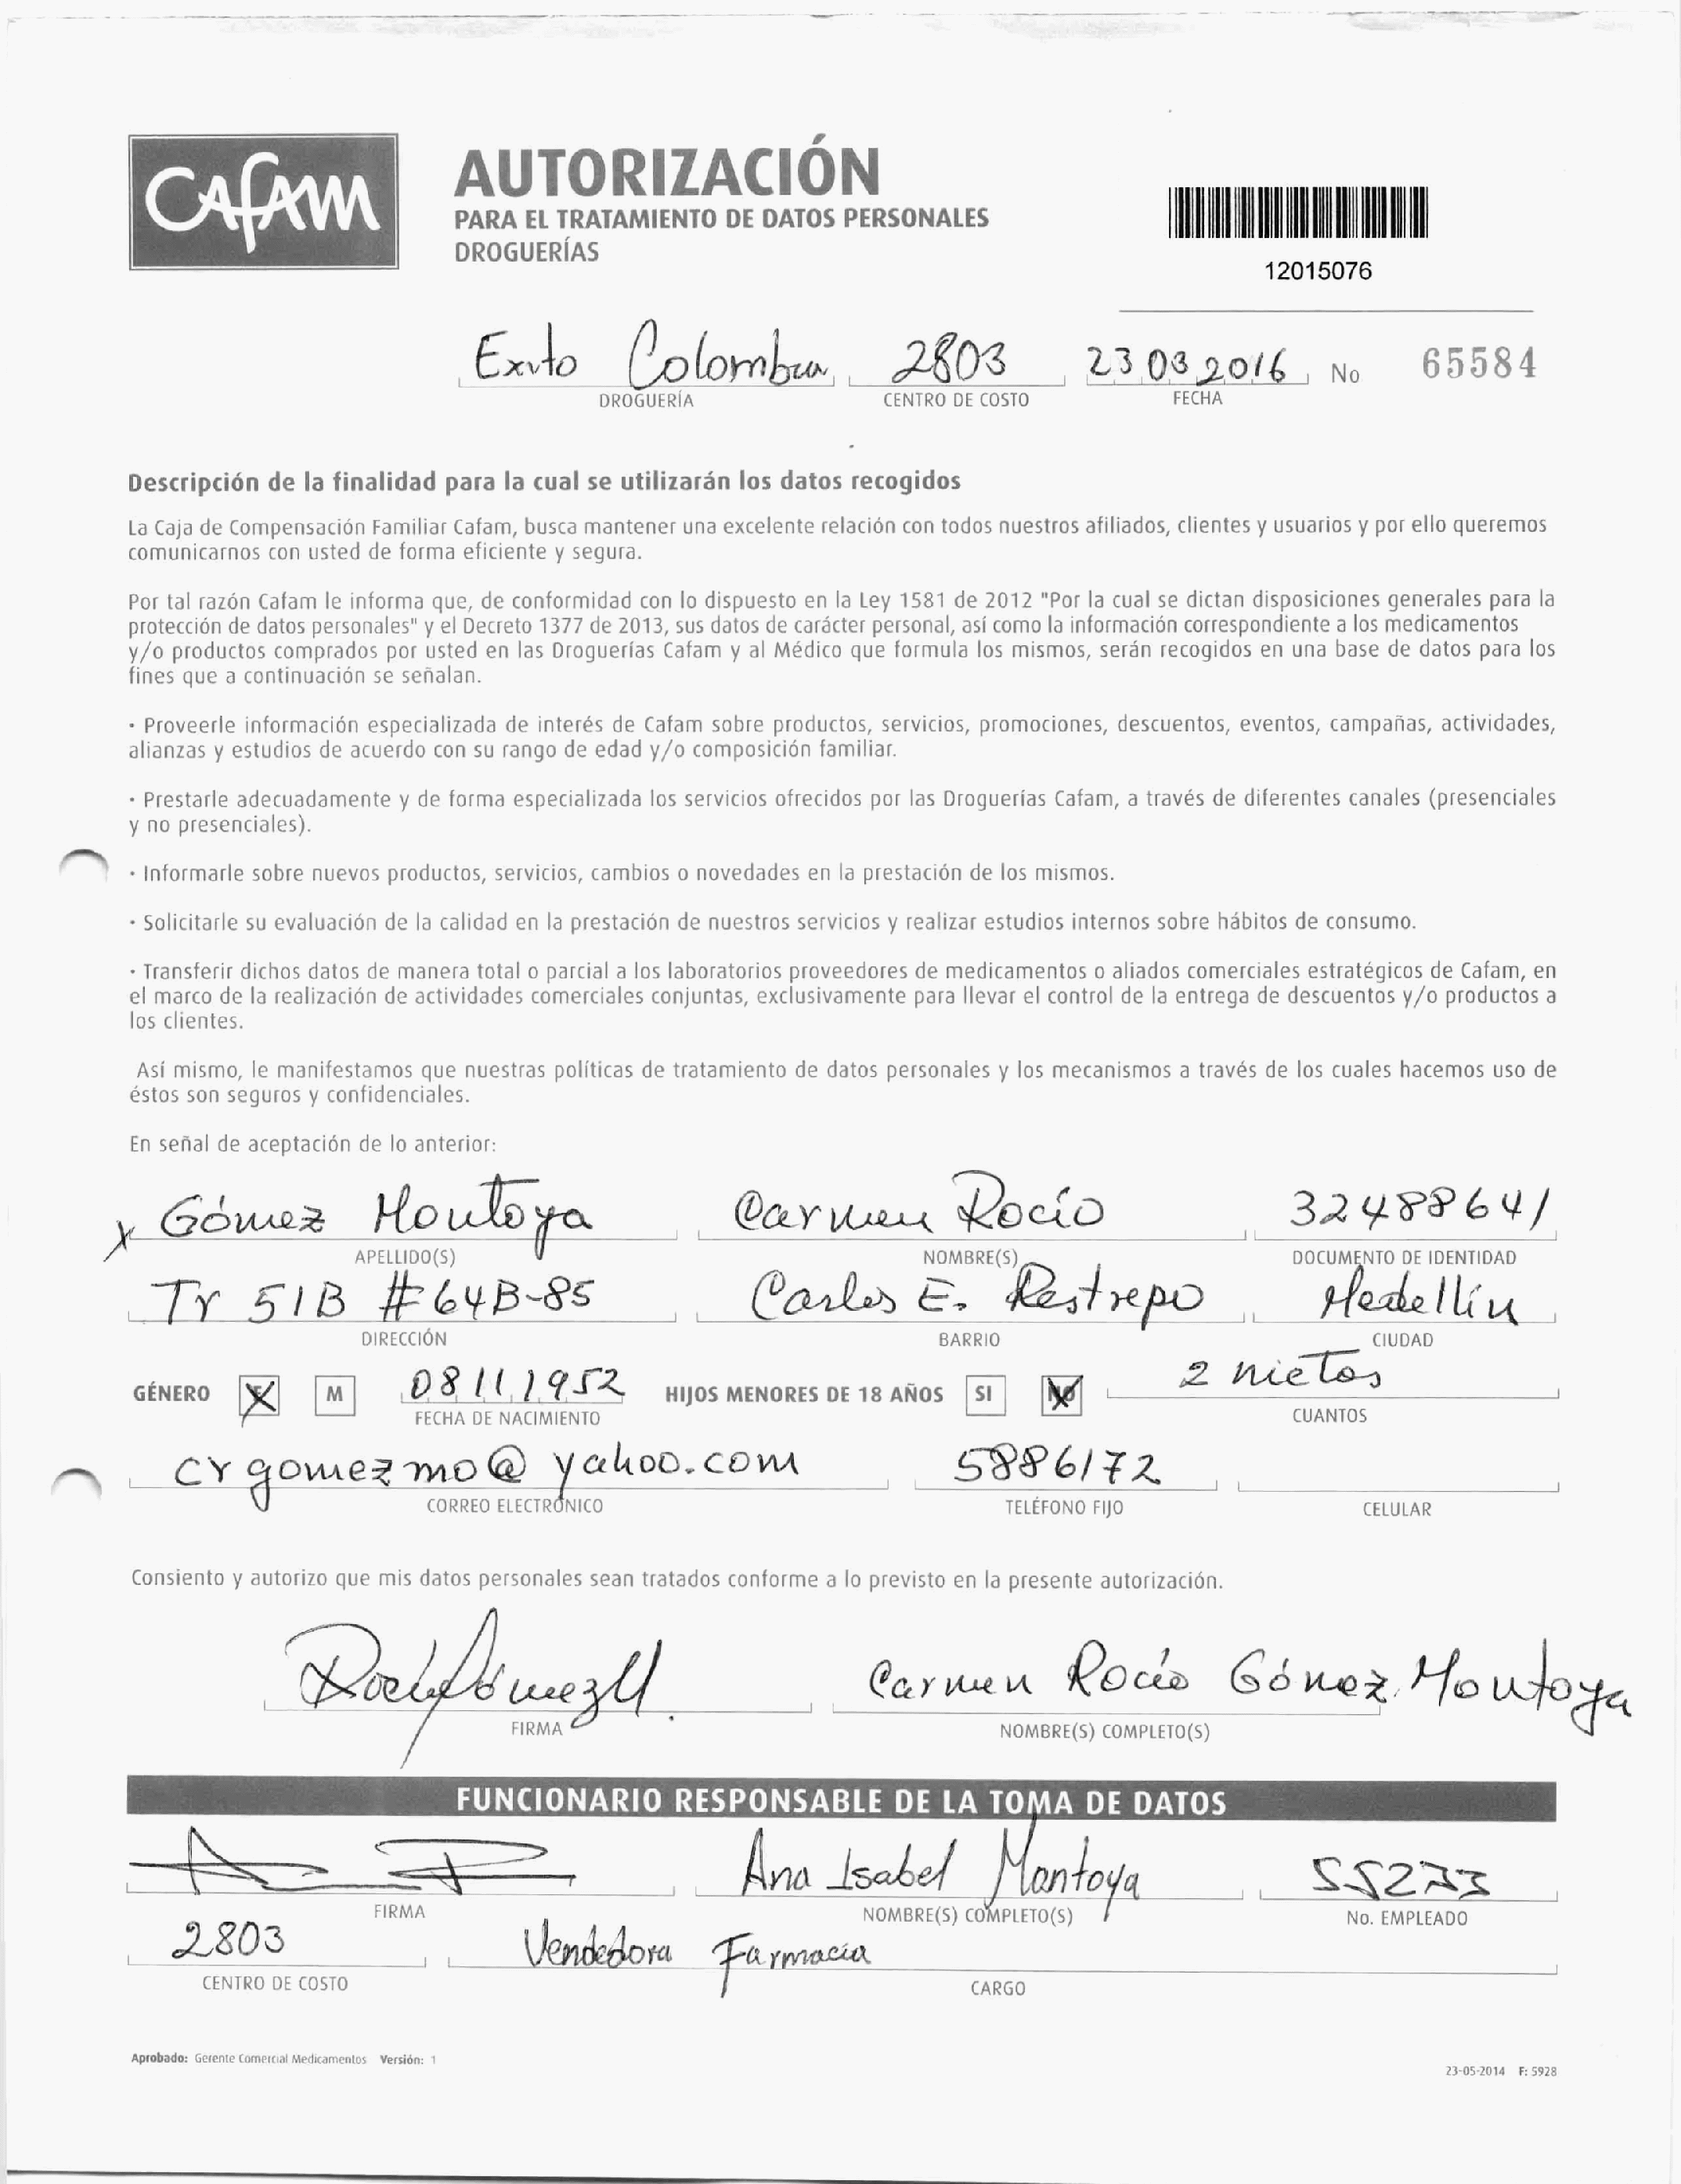 CAFAM
AUTORIZACIÓN
PARA EL TRATAMIENTO DE DATOS PERSONALES
DROGUERÍAS
12015076
Exito Colombia 2803 23 03 2016 No 65584
DROGUERÍA CENTRO DE COSTO FECHA
Descripción de la finalidad para la cual se utilizarán los datos recogidos
La Caja de Compensación Familiar Cafam, busca mantener una excelente relación con todos nuestros afiliados, clientes y usuarios y por ello queremos
comunicarnos con usted de forma eficiente y segura.
Por tal razón Cafam le informa que, de conformidad con lo dispuesto en la Ley 1581 de 2012 "Por la cual se dictan disposiciones generales para la
protección de datos personales" y el Decreto 1377 de 2013, sus datos de carácter personal, así como la información correspondiente a los medicamentos
y/o productos comprados por usted en las Droguerías Cafam y al Médico que formula los mismos, serán recogidos en una base de datos para los
fines que a continuación se señalan.
· Proveerle información especializada de interés de Cafam sobre productos, servicios, promociones, descuentos, eventos, campañas, actividades,
alianzas y estudios de acuerdo con su rango de edad y/o composición familiar.
· Prestarle adecuadamente y de forma especializada los servicios ofrecidos por las Droguerías Cafam, a través de diferentes canales (presenciales
y no presenciales).
· Informarle sobre nuevos productos, servicios, cambios o novedades en la prestación de los mismos.
· Solicitarle su evaluación de la calidad en la prestación de nuestros servicios y realizar estudios internos sobre hábitos de consumo.
· Transferir dichos datos de manera total o parcial a los laboratorios proveedores de medicamentos o aliados comerciales estratégicos de Cafam, en
el marco de la realización de actividades comerciales conjuntas, exclusivamente para llevar el control de la entrega de descuentos y/o productos a
los clientes.
Así mismo, le manifestamos que nuestras políticas de tratamiento de datos personales y los mecanismos a través de los cuales hacemos uso de
éstos son seguros y confidenciales.
En señal de aceptación de lo anterior:
x Gómez Montoya Carmen Rocío 32488641
APELLIDO(S) NOMBRE(S) DOCUMENTO DE IDENTIDAD
Tr 51B #64B-85 Carlos E. Restrepo Medellín
DIRECCIÓN BARRIO CIUDAD
GÉNERO X M 08 11 1952 HIJOS MENORES DE 18 AÑOS SI NO 2 nietos
FECHA DE NACIMIENTO CUANTOS
crgomezmo@yahoo.com 5886172
CORREO ELECTRÓNICO TELÉFONO FIJO CELULAR
Consiento y autorizo que mis datos personales sean tratados conforme a lo previsto en la presente autorización.
Carmen Rocío Gómez Montoya
FIRMA NOMBRE(S) COMPLETO(S)
FUNCIONARIO RESPONSABLE DE LA TOMA DE DATOS
Ana Isabel Montoya 55273
FIRMA NOMBRE(S) COMPLETO(S) No. EMPLEADO
2803 Vendedora Farmacia
CENTRO DE COSTO CARGO
Aprobado: Gerente Comercial Medicamentos Versión: 1
23-05-2014 F: 5928